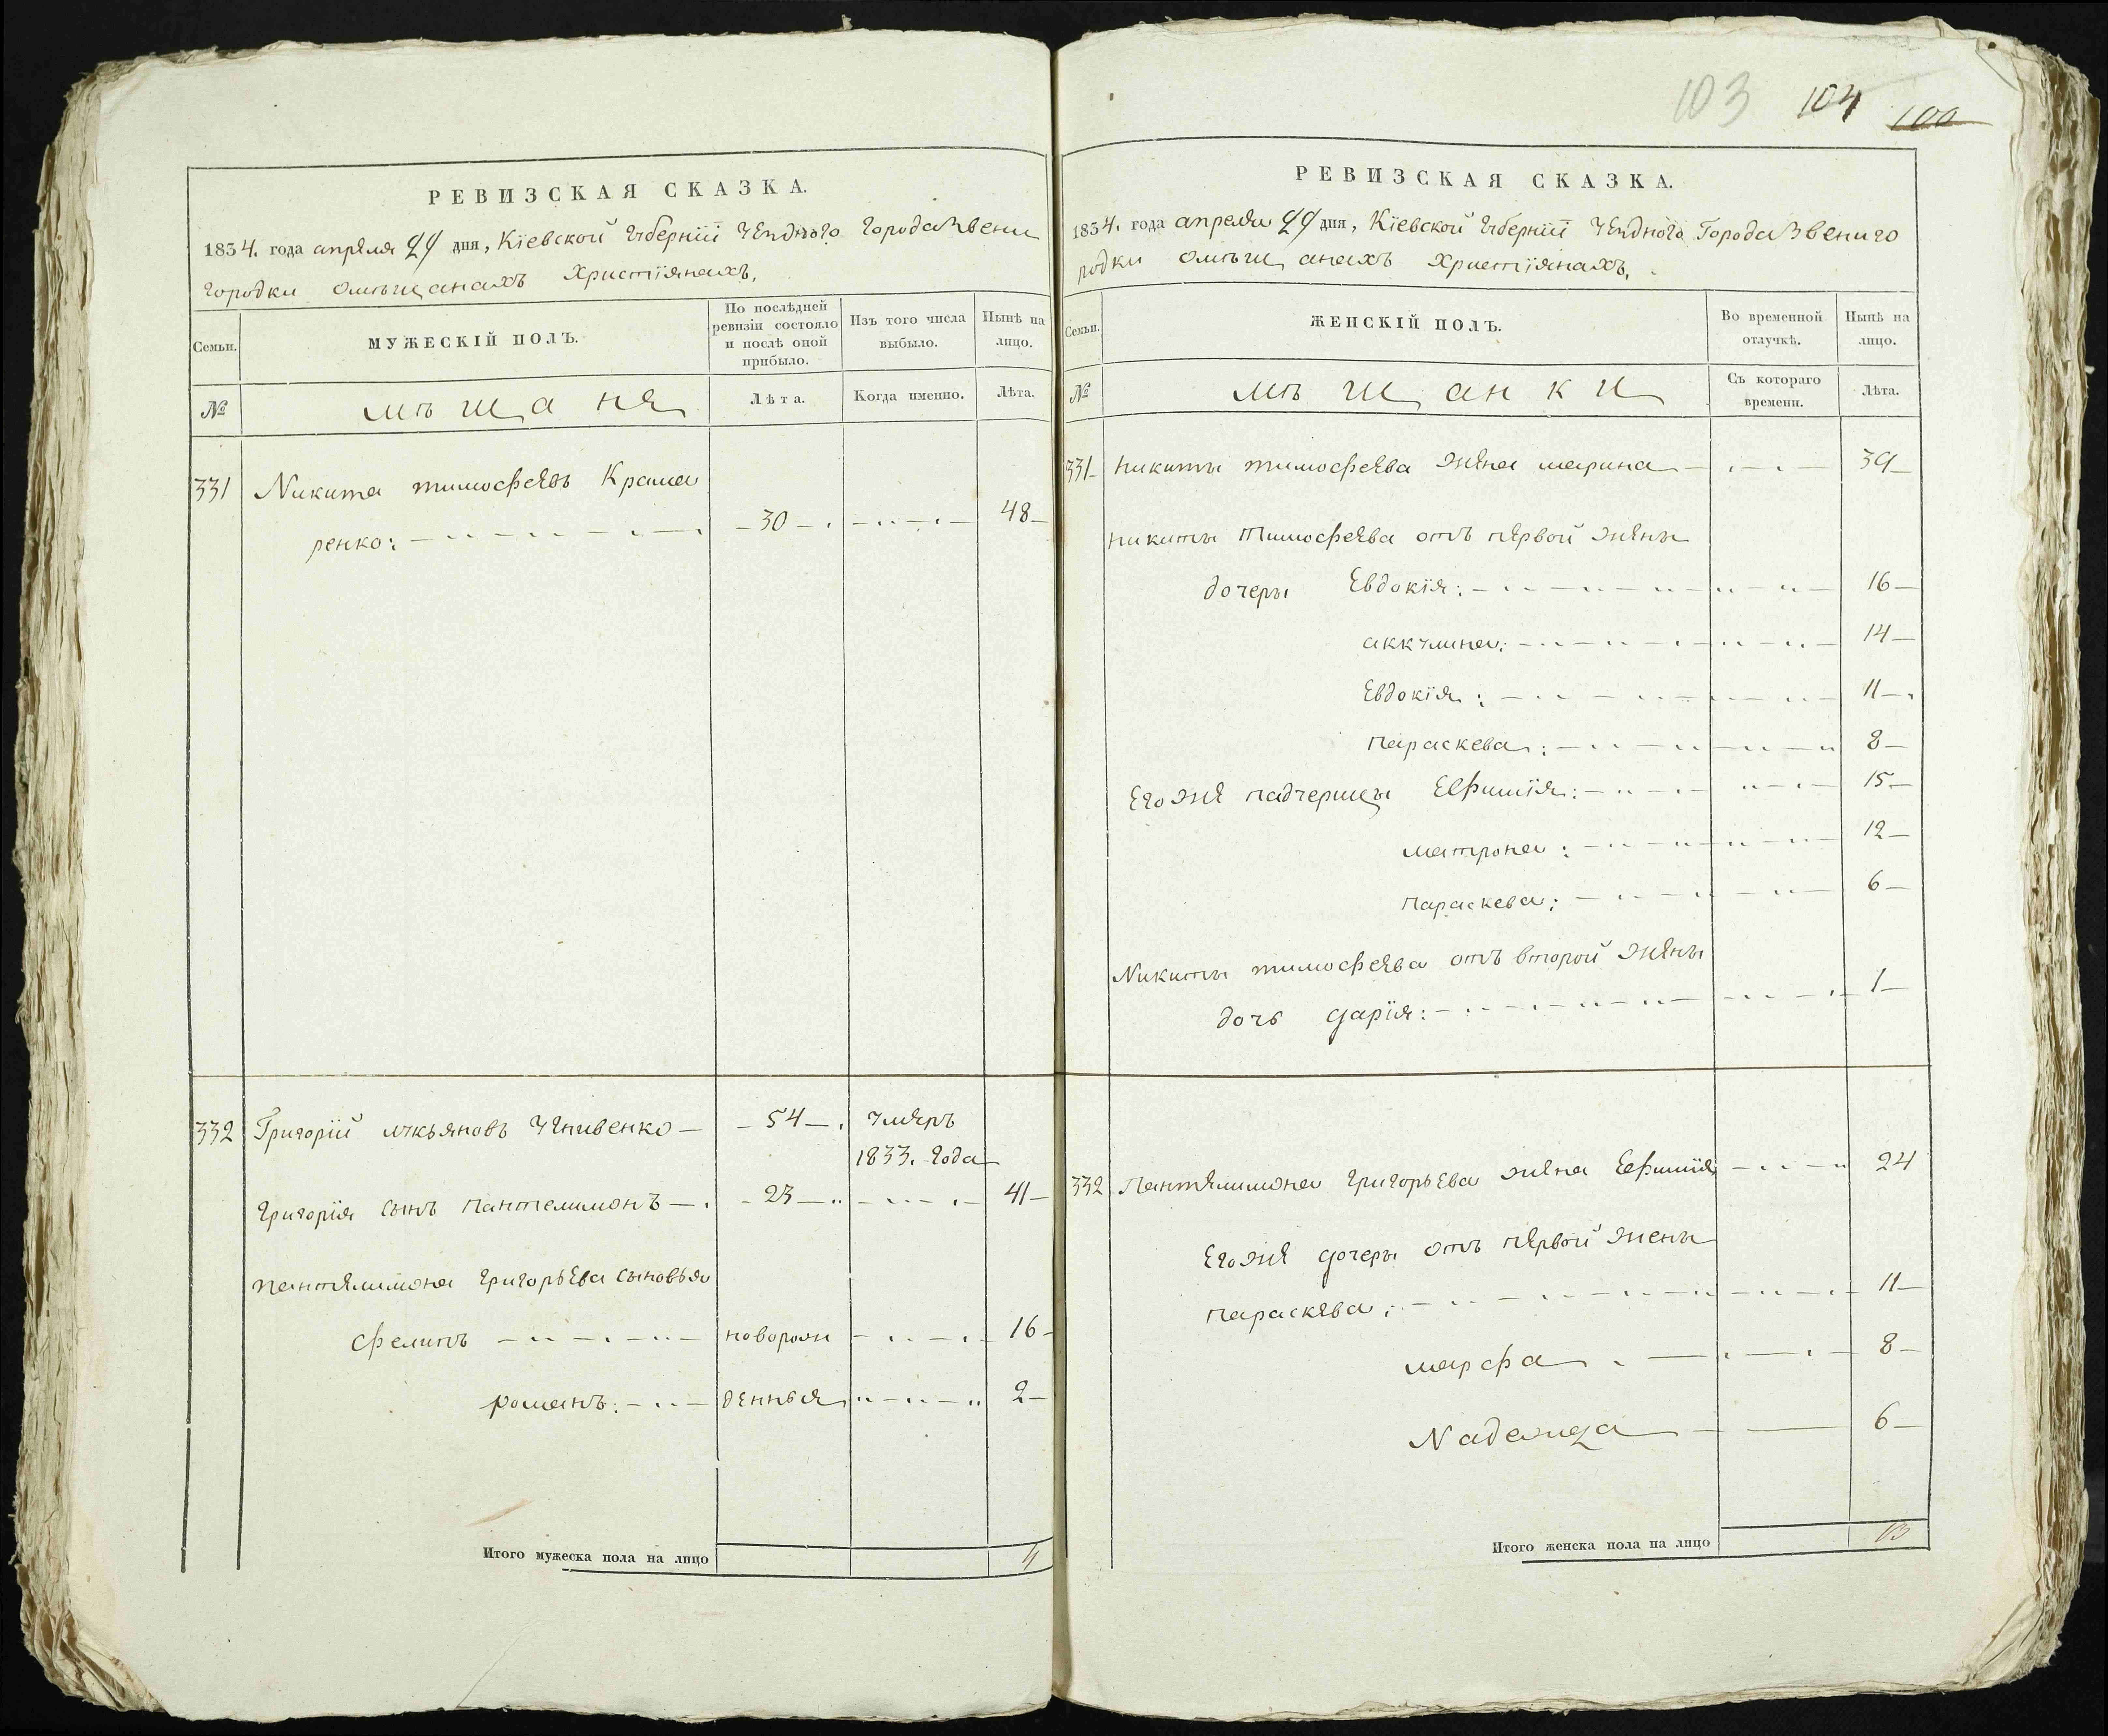 РЕВИЗСКАЯ СКАЗКА.
1834. года апреля 24 дня, Кіевской Губерніи Уезднаго Города Звени
городки о мѣщанахъ Христіянахъ.
Семьи.
МУЖЕСКІЙ ПОЛЪ.
По послѣдней ревизіи состояло и послѣ оной прибыло.
Изъ того числа выбыло.
Нынѣ на лицо.
№
мѣщане
Лѣта.
Когда именно.
Лѣта.
331 Никита тимофеевъ Крама
ренко: 30 48
332 Григорій лукьяновъ 54 умеръ
1833. года
Григорія сынъ пантелимонъ 23 41
пантелимона григорьева сыновья
Филипъ новорож 16
романъ: денныя 2
Итого мужеска пола на лицо 4
103 104 100
РЕВИЗСКАЯ СКАЗКА.
1834. года апреля 24 дня, Кіевской Губерніи Уезднаго Города Звениго
родки о мѣщанахъ Христіянахъ.
Семьи.
ЖЕНСКІЙ ПОЛЪ.
Во временной отлучкѣ.
Нынѣ на лицо.
№
мѣщанки
Съ котораго времени.
Лѣта.
331 Никиты тимофеева жена марина 39
Никиты Тимофеева отъ первой жены
дочеры Евдокія: 16
аккулина: 14
Евдокія: 11
параскева: 8
Его же падчерицы Ефимія: 15
матрона: 12
параскева: 6
Никиты тимофеева отъ второй жены
дочь дарія: 1
332 Пантелимона григорьева жена Ефимія 24
Его же дочеры отъ первой жены
параскева: 11
марфа 8
Надежда 6
Итого женска пола на лицо 13